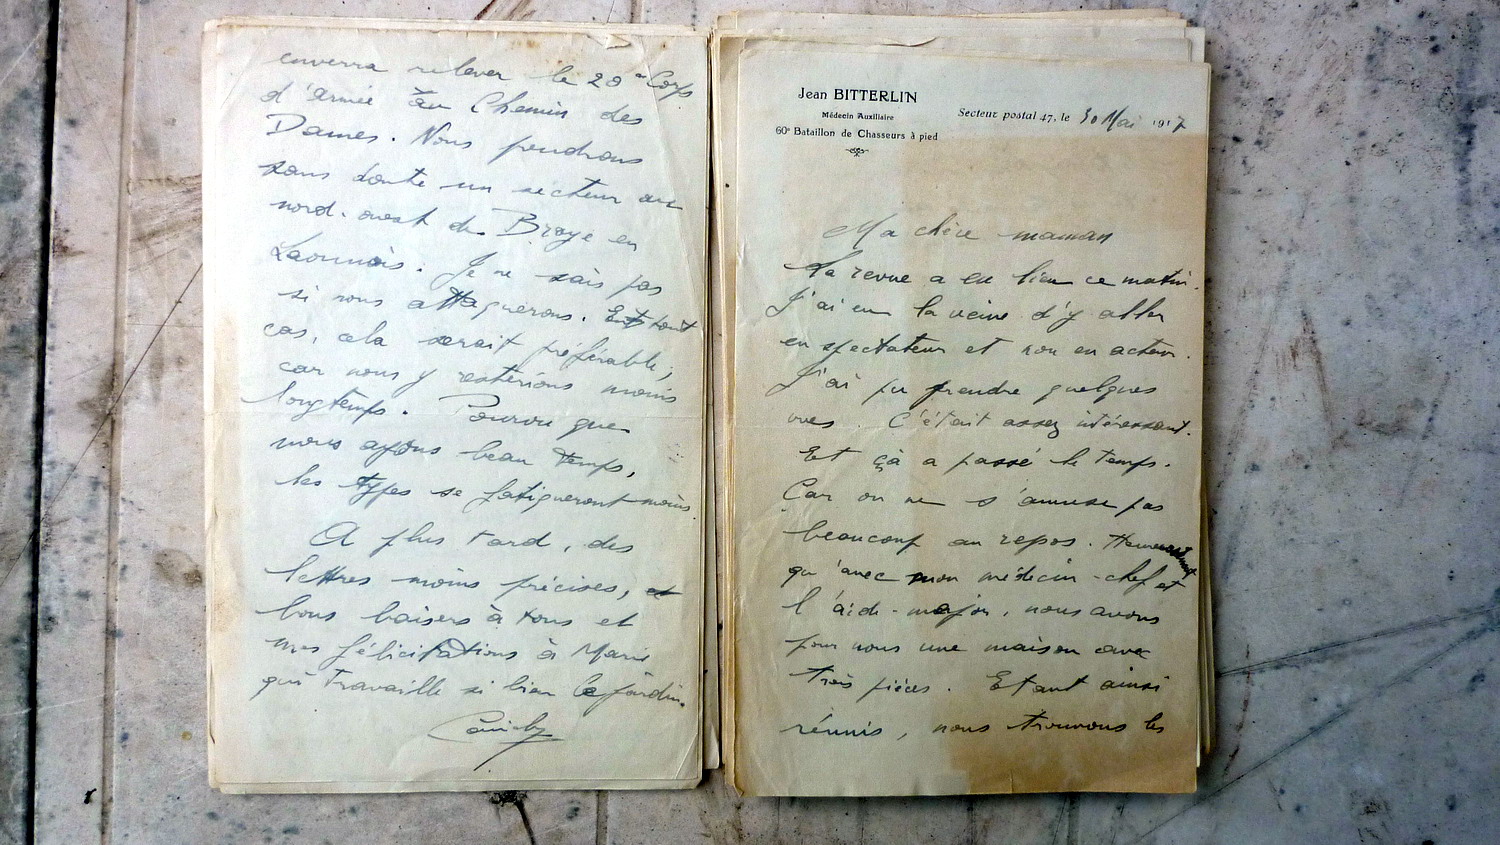 enverra relever le 20e Corps
d'armée au Chemin des
Dames. Nous prendrons
sans doute un secteur au
nord-ouest de Braye en
Laonnois. Je ne sais pas
si nous attaquerons. En tout
cas, cela serait préférable,
car nous y resterions moins
longtemps. Pourvu que
nous ayons beau temps,
les types se fatigueront moins.
A plus tard, des
lettres moins précises, et
bons baisers à tous et
mes félicitations à Marie
qui travaille si bien le jardin.
Jean BITTERLIN
Médecin Auxiliaire
60e Bataillon de Chasseurs à pied
Secteur postal 47, le 30 Mai 1917
Ma chère maman
La revue a eu lieu ce matin.
J'ai eu la veine d'y aller
en spectateur et non en acteur.
J'ai pu prendre quelques
vues. C'était assez intéressant.
Et çà a passé le temps.
Car on ne s'amuse pas
beaucoup au repos. Heureusement
qu'avec mon médecin-chef et
l'aide-major, nous avons
pour nous une maison avec
trois pièces. Etant ainsi
réunis, nous trouvons les